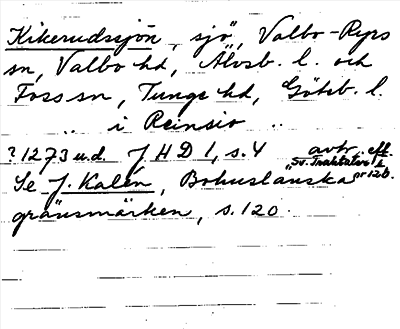 Kikerudssjön, sjö, Valbo-Ryrs
sn, Valbo hd, Älvsb. l. och
Foss sn, Tunge hd, Göteb. l.
.. i Reinsio ..
? 1273 u.d. JHD 1, s. 4 avtr. eft.
Sv. Traktater 1
nr 126.
Se J. Kalén, Bohuslänska
gränsmärken, s. 120.